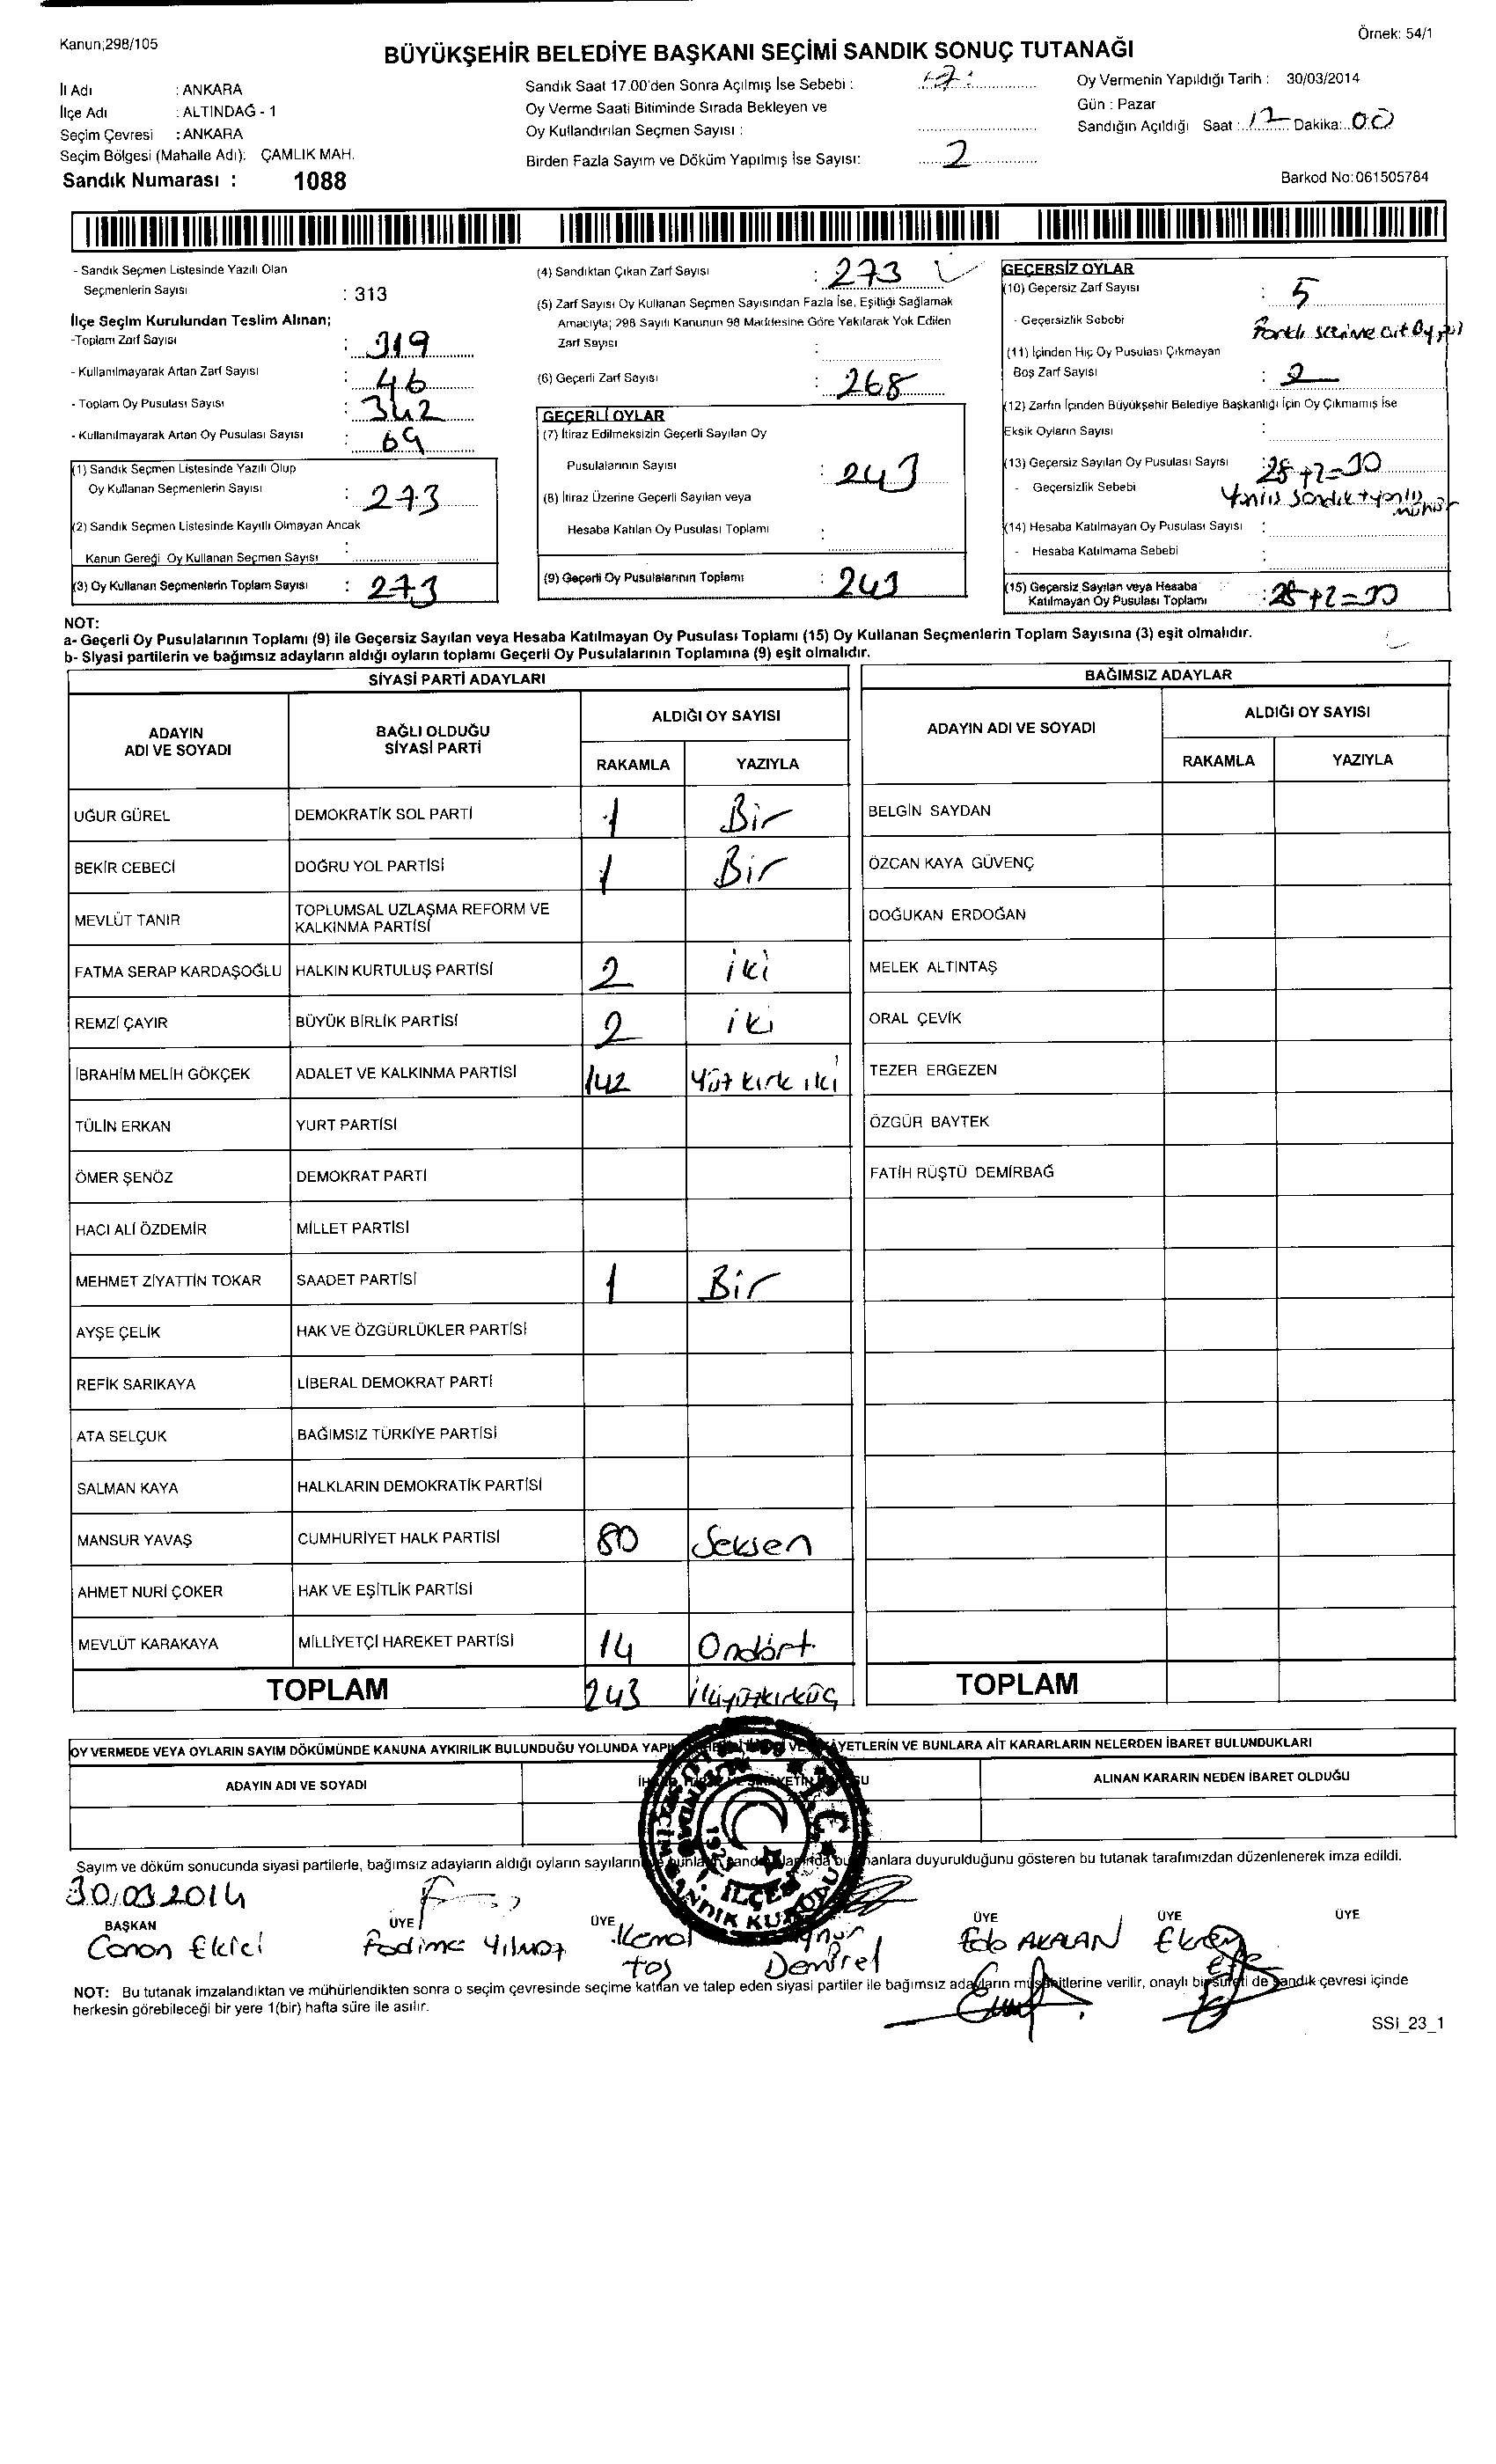 Kanun;298/105
Örnek: 54/1
BÜYÜKŞEHİR BELEDİYE BAŞKANI SEÇİMİ SANDIK SONUÇ TUTANAĞI
İl Adı : ANKARA
İlçe Adı : ALTINDAĞ - 1
Seçim Çevresi : ANKARA
Seçim Bölgesi (Mahalle Adı): ÇAMLIK MAH.
Sandık Numarası : 1088
Sandık Saat 17.00'den Sonra Açılmış İse Sebebi :
Oy Verme Saati Bitiminde Sırada Bekleyen ve
Oy Kullandırılan Seçmen Sayısı :
Birden Fazla Sayım ve Döküm Yapılmış İse Sayısı: 2
Oy Vermenin Yapıldığı Tarih : 30/03/2014
Gün : Pazar
Sandığın Açıldığı Saat : 17 Dakika: 00
Barkod No:061505784
- Sandık Seçmen Listesinde Yazılı Olan
Seçmenlerin Sayısı : 313
İlçe Seçim Kurulundan Teslim Alınan;
-Toplam Zarf Sayısı : 319
- Kullanılmayarak Artan Zarf Sayısı : 46
- Toplam Oy Pusulası Sayısı : 342
- Kullanılmayarak Artan Oy Pusulası Sayısı : 69
(1) Sandık Seçmen Listesinde Yazılı Olup
Oy Kullanan Seçmenlerin Sayısı : 273
(2) Sandık Seçmen Listesinde Kayıtlı Olmayan Ancak
Kanun Gereği Oy Kullanan Seçmen Sayısı :
(3) Oy Kullanan Seçmenlerin Toplam Sayısı : 273
(4) Sandıktan Çıkan Zarf Sayısı : 273
(5) Zarf Sayısı Oy Kullanan Seçmen Sayısından Fazla İse, Eşitliği Sağlamak
Amacıyla; 298 Sayılı Kanunun 98 Maddesine Göre Yakılarak Yok Edilen
Zarf Sayısı :
(6) Geçerli Zarf Sayısı : 268
GEÇERLİ OYLAR
(7) İtiraz Edilmeksizin Geçerli Sayılan Oy
Pusulalarının Sayısı : 243
(8) İtiraz Üzerine Geçerli Sayılan veya
Hesaba Katılan Oy Pusulası Toplamı :
(9) Geçerli Oy Pusulalarının Toplamı : 243
GEÇERSİZ OYLAR
(10) Geçersiz Zarf Sayısı : 5
- Geçersizlik Sebebi Farklı seçime ait oy
(11) İçinden Hiç Oy Pusulası Çıkmayan
Boş Zarf Sayısı : 2
(12) Zarfın İçinden Büyükşehir Belediye Başkanlığı İçin Oy Çıkmamış İse
Eksik Oyların Sayısı :
(13) Geçersiz Sayılan Oy Pusulası Sayısı 28+2=30
- Geçersizlik Sebebi Yanlış sandık + yanlış mühür
(14) Hesaba Katılmayan Oy Pusulası Sayısı :
- Hesaba Katılmama Sebebi :
(15) Geçersiz Sayılan veya Hesaba
Katılmayan Oy Pusulası Toplamı : 28+2=30
NOT:
a- Geçerli Oy Pusulalarının Toplamı (9) ile Geçersiz Sayılan veya Hesaba Katılmayan Oy Pusulası Toplamı (15) Oy Kullanan Seçmenlerin Toplam Sayısına (3) eşit olmalıdır.
b- Siyasi partilerin ve bağımsız adayların aldığı oyların toplamı Geçerli Oy Pusulalarının Toplamına (9) eşit olmalıdır.
SİYASİ PARTİ ADAYLARI
ADAYIN ADI VE SOYADI BAĞLI OLDUĞU SİYASİ PARTİ ALDIĞI OY SAYISI
RAKAMLA YAZIYLA
UĞUR GÜREL DEMOKRATİK SOL PARTİ 1 Bir
BEKİR CEBECİ DOĞRU YOL PARTİSİ 1 Bir
MEVLÜT TANIR TOPLUMSAL UZLAŞMA REFORM VE KALKINMA PARTİSİ
FATMA SERAP KARDAŞOĞLU HALKIN KURTULUŞ PARTİSİ 2 iki
REMZİ ÇAYIR BÜYÜK BİRLİK PARTİSİ 2 iki
İBRAHİM MELİH GÖKÇEK ADALET VE KALKINMA PARTİSİ 142 Yüz kırk iki
TÜLİN ERKAN YURT PARTİSİ
ÖMER ŞENÖZ DEMOKRAT PARTİ
HACI ALİ ÖZDEMİR MİLLET PARTİSİ
MEHMET ZİYATTİN TOKAR SAADET PARTİSİ 1 Bir
AYŞE ÇELİK HAK VE ÖZGÜRLÜKLER PARTİSİ
REFİK SARIKAYA LİBERAL DEMOKRAT PARTİ
ATA SELÇUK BAĞIMSIZ TÜRKİYE PARTİSİ
SALMAN KAYA HALKLARIN DEMOKRATİK PARTİSİ
MANSUR YAVAŞ CUMHURİYET HALK PARTİSİ 80 Seksen
AHMET NURİ ÇOKER HAK VE EŞİTLİK PARTİSİ
MEVLÜT KARAKAYA MİLLİYETÇİ HAREKET PARTİSİ 14 Ondört
TOPLAM 243 ikiyüzkırküç
BAĞIMSIZ ADAYLAR
ADAYIN ADI VE SOYADI ALDIĞI OY SAYISI
RAKAMLA YAZIYLA
BELGİN SAYDAN
ÖZCAN KAYA GÜVENÇ
DOĞUKAN ERDOĞAN
MELEK ALTINTAŞ
ORAL ÇEVİK
TEZER ERGEZEN
ÖZGÜR BAYTEK
FATİH RÜŞTÜ DEMİRBAĞ
TOPLAM
OY VERMEDE VEYA OYLARIN SAYIM DÖKÜMÜNDE KANUNA AYKIRILIK BULUNDUĞU YOLUNDA VE BUNLARA AİT KARARLARIN NELERDEN İBARET BULUNDUKLARI
ADAYIN ADI VE SOYADI ALINAN KARARIN NEDEN İBARET OLDUĞU
T.C. İLÇE SANDIK KURULU
Sayım ve döküm sonucunda siyasi partilerle, bağımsız adayların aldığı oyların sayılarını duyurulduğunu gösteren bu tutanak tarafımızdan düzenlenerek imza edildi.
30.03.2014
BAŞKAN ÜYE ÜYE ÜYE ÜYE ÜYE
Canan Ekici Fadime Yılmaz Kemal Taş Aynur Demirel Eda AKALAN
NOT: Bu tutanak imzalandıktan ve mühürlendikten sonra o seçim çevresinde seçime katılan ve talep eden siyasi partiler ile bağımsız adayların müşahitlerine verilir, onaylı bir sureti de sandık çevresi içinde
herkesin görebileceği bir yere 1(bir) hafta süre ile asılır.
SSI_23_1